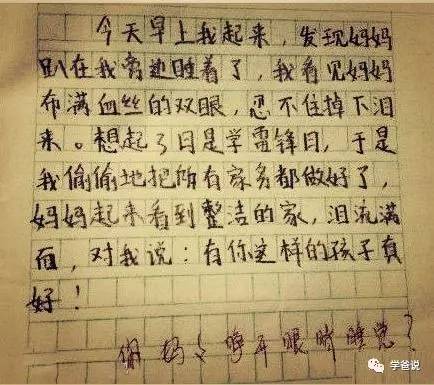 今天早上我起来，发现妈妈
趴在我旁边睡着了，我看见妈妈
布满血丝的双眼，忍不住掉下泪
来。想起了日是学雷锋日，于是
我偷偷地把所有家务都做好了，
妈妈起来看到整洁的家，泪流满
面，对我说：有你这样的孩子真
好！
你妈々睁开眼睛睡觉？
学爸说